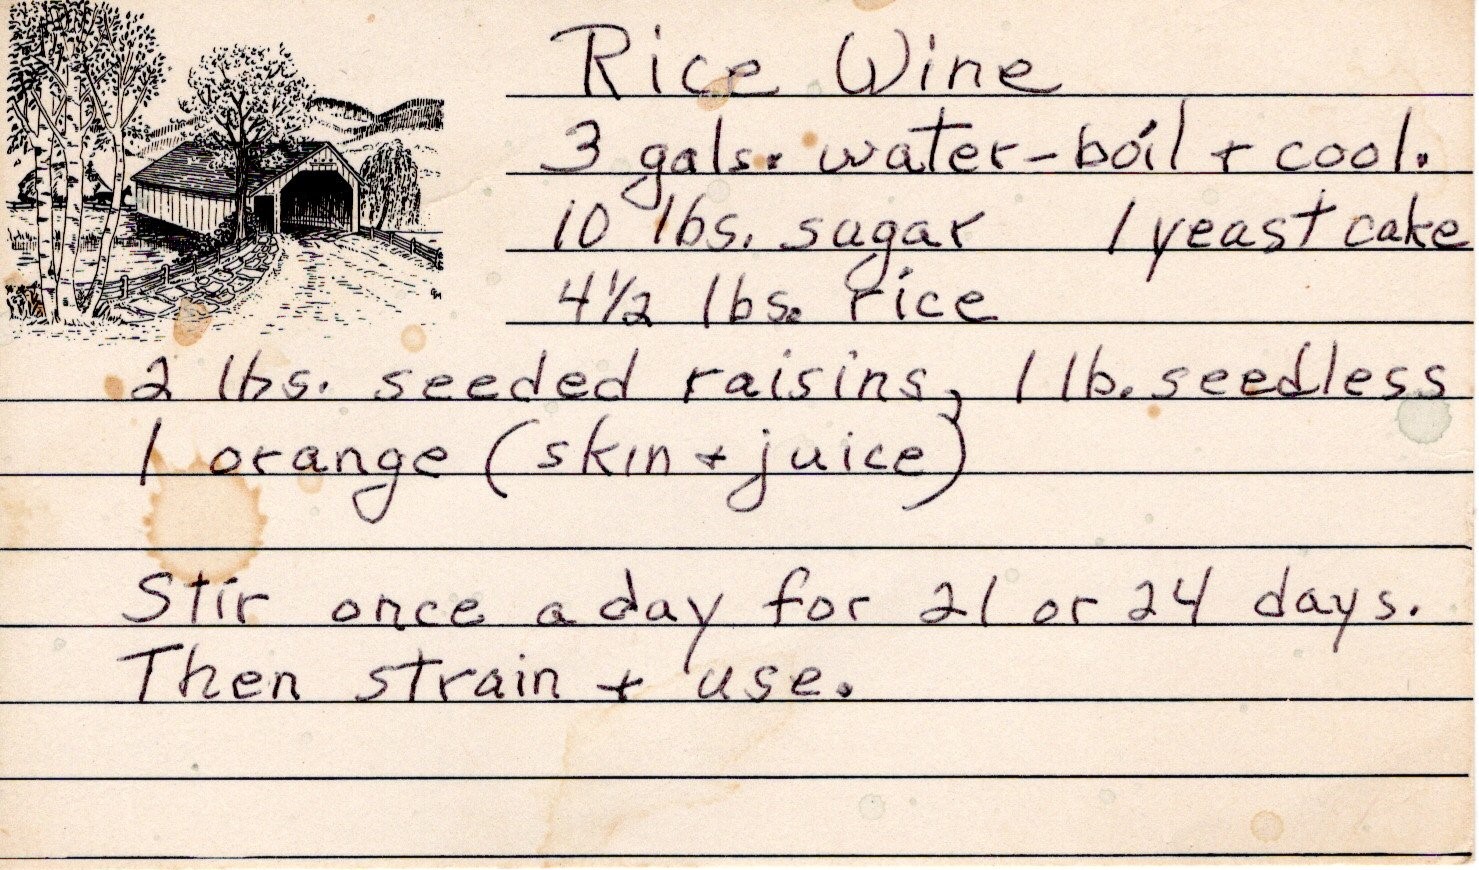 Rice Wine
3 gals. water - boil + cool.
10 lbs. sugar 1 yeast cake
4 1/2 lbs. rice
2 lbs. seeded raisins, 1 lb. seedless
1 orange (skin + juice)
Stir once a day for 21 or 24 days.
Then strain + use.